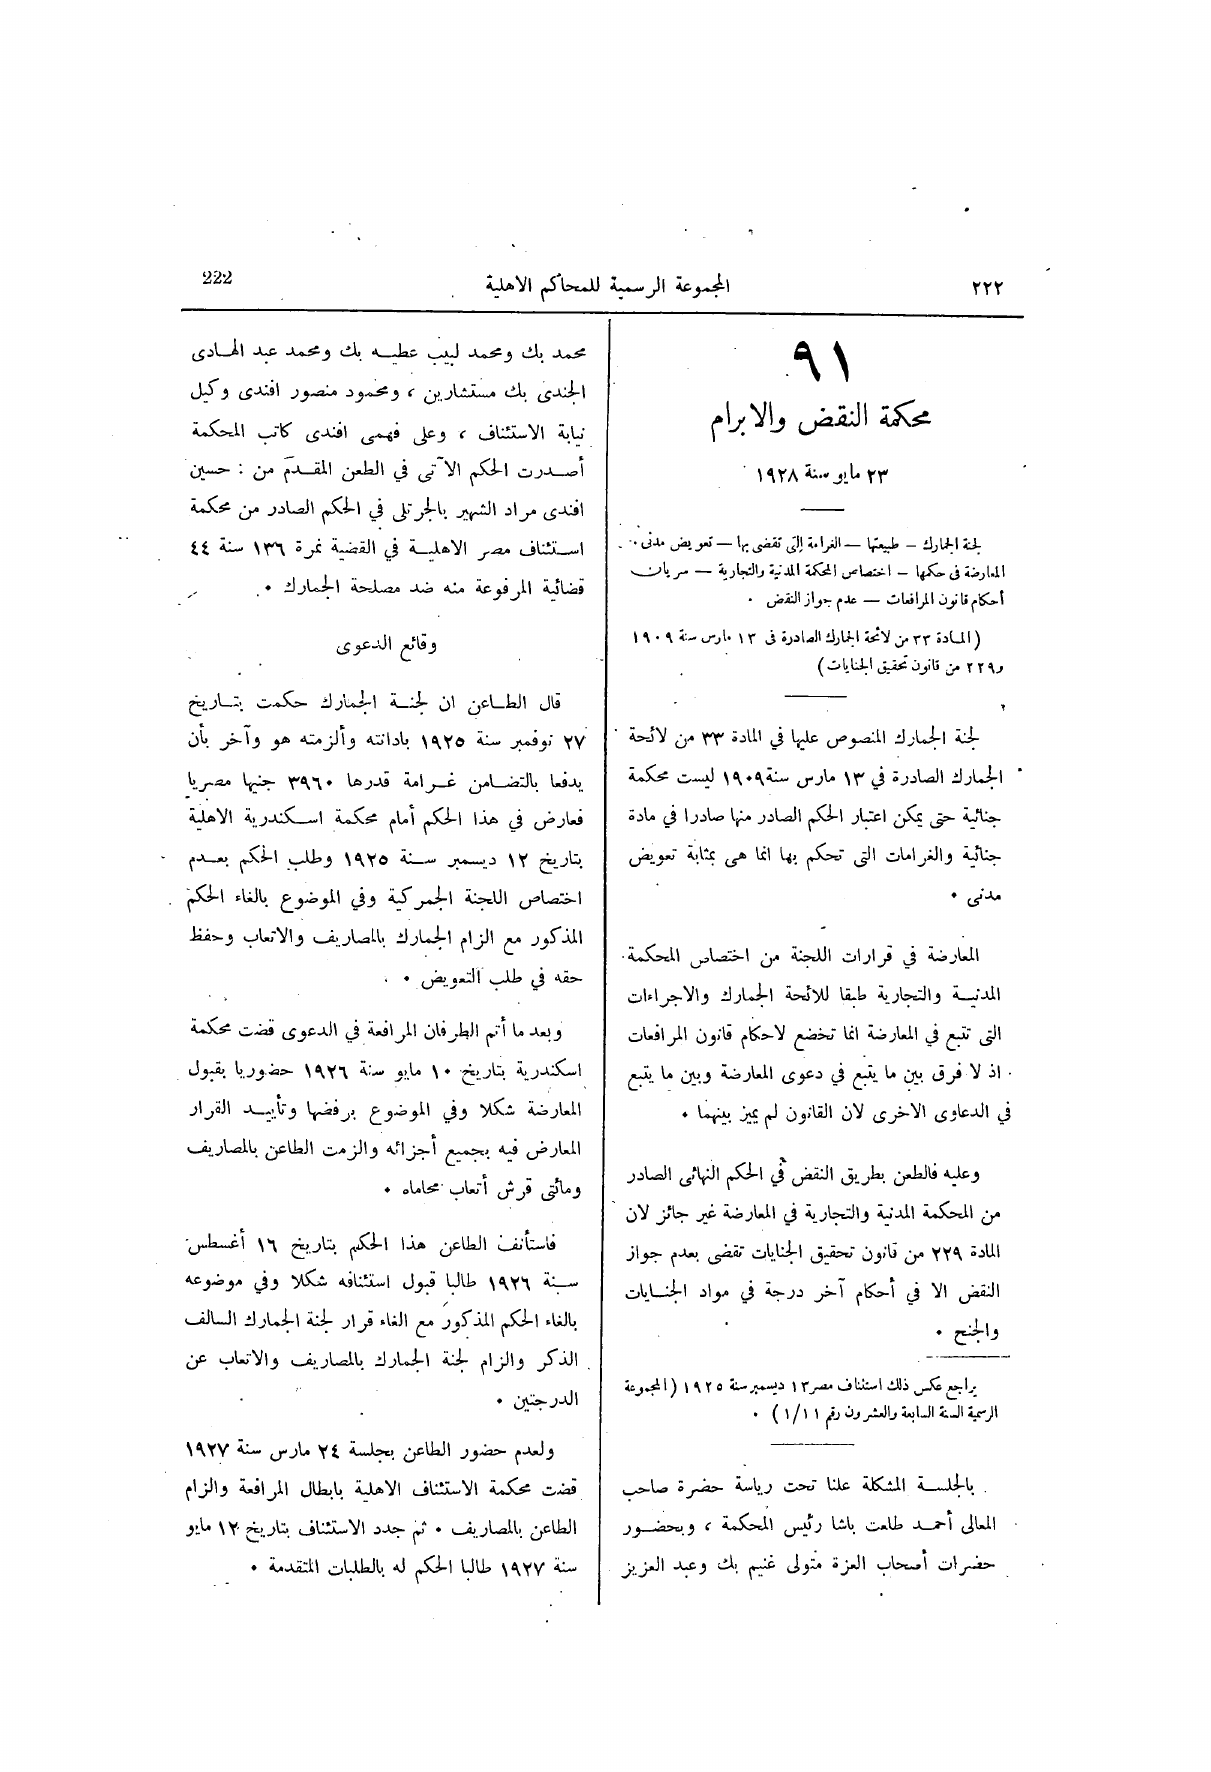 ٢٢٢
المجموعة الرسمية للمحاكم الاهلية
222
٩١
محكمة النقض والابرام
٢٣ مايو سنة ١٩٢٨
لجنة الجمارك – طبيعتها – الغرامة التى تقضى بها – تعويض مدنى ٠
المعارضة فى حكمها – اختصاص المحكمة المدنية والتجارية – سريان
أحكام قانون المرافعات – عدم جواز النقض ٠
(المادة ٣٣ من لائحة الجمارك الصادرة فى ١٣ مارس سنة ١٩٠٩
و٢٢٩ من قانون تحقيق الجنايات)
لجنة الجمارك المنصوص عليها في المادة ٣٣ من لائحة
الجمارك الصادرة في ١٣ مارس سنة ١٩٠٩ ليست محكمة
جنائية حتى يمكن اعتبار الحكم الصادر منها صادرا في مادة
جنائية والغرامات التى تحكم بها انما هى بمثابة تعويض
مدنى ٠
المعارضة في قرارات اللجنة من اختصاص المحكمة
المدنية والتجارية طبقا للائحة الجمارك والاجراءات
التى تتبع في المعارضة انما تخضع لاحكام قانون المرافعات
اذ لا فرق بين ما يتبع في دعوى المعارضة وبين ما يتبع
في الدعاوى الاخرى لان القانون لم يميز بينهما ٠
وعليه فالطعن بطريق النقض في الحكم النهائى الصادر
من المحكمة المدنية والتجارية في المعارضة غير جائز لان
المادة ٢٢٩ من قانون تحقيق الجنايات تقضى بعدم جواز
النقض الا في أحكام آخر درجة في مواد الجنايات
والجنح ٠
يراجع عكس ذلك استئناف مصر ١٣ ديسمبر سنة ١٩٢٥ (المجموعة
الرسمية السنة السابعة والعشرون رقم ١/١١) ٠
بالجلسة المشكلة علنا تحت رياسة حضرة صاحب
المعالى أحمد طلعت باشا رئيس المحكمة ، وبحضور
حضرات أصحاب العزة متولى غنيم بك وعبد العزيز
محمد بك ومحمد لبيب عطيه بك ومحمد عبد الهادى
الجندى بك مستشارين ، ومحمود منصور افندى وكيل
نيابة الاستئناف ، وعلى فهمى افندى كاتب المحكمة
أصدرت الحكم الآتى في الطعن المقدم من : حسين
افندى مراد الشهير بالجرتلى في الحكم الصادر من محكمة
استئناف مصر الاهلية في القضية نمرة ١٣٦ سنة ٤٤
قضائية المرفوعة منه ضد مصلحة الجمارك ٠
وقائع الدعوى
قال الطاعن ان لجنة الجمارك حكمت بتاريخ
٢٧ نوفمبر سنة ١٩٢٥ بادانته وألزمته هو وآخر بأن
يدفعا بالتضامن غرامة قدرها ٣٩٦٠ جنيها مصريا
فعارض في هذا الحكم أمام محكمة اسكندرية الاهلية
بتاريخ ١٢ ديسمبر سنة ١٩٢٥ وطلب الحكم بعدم
اختصاص اللجنة الجمركية وفي الموضوع بالغاء الحكم
المذكور مع الزام الجمارك بالمصاريف والاتعاب وحفظ
حقه في طلب التعويض ٠
وبعد ما أتم الطرفان المرافعة في الدعوى قضت محكمة
اسكندرية بتاريخ ١٠ مايو سنة ١٩٢٦ حضوريا بقبول
المعارضة شكلا وفي الموضوع برفضها وتأييد القرار
المعارض فيه بجميع أجزائه والزمت الطاعن بالمصاريف
ومائتى قرش أتعاب محاماه ٠
فاستأنف الطاعن هذا الحكم بتاريخ ١٦ أغسطس
سنة ١٩٢٦ طالبا قبول استئنافه شكلا وفي موضوعه
بالغاء الحكم المذكور مع الغاء قرار لجنة الجمارك السالف
الذكر والزام لجنة الجمارك بالمصاريف والاتعاب عن
الدرجتين ٠
ولعدم حضور الطاعن بجلسة ٢٤ مارس سنة ١٩٢٧
قضت محكمة الاستئناف الاهلية بابطال المرافعة والزام
الطاعن بالمصاريف ٠ ثم جدد الاستئناف بتاريخ ١٢ مايو
سنة ١٩٢٧ طالبا الحكم له بالطلبات المتقدمة ٠